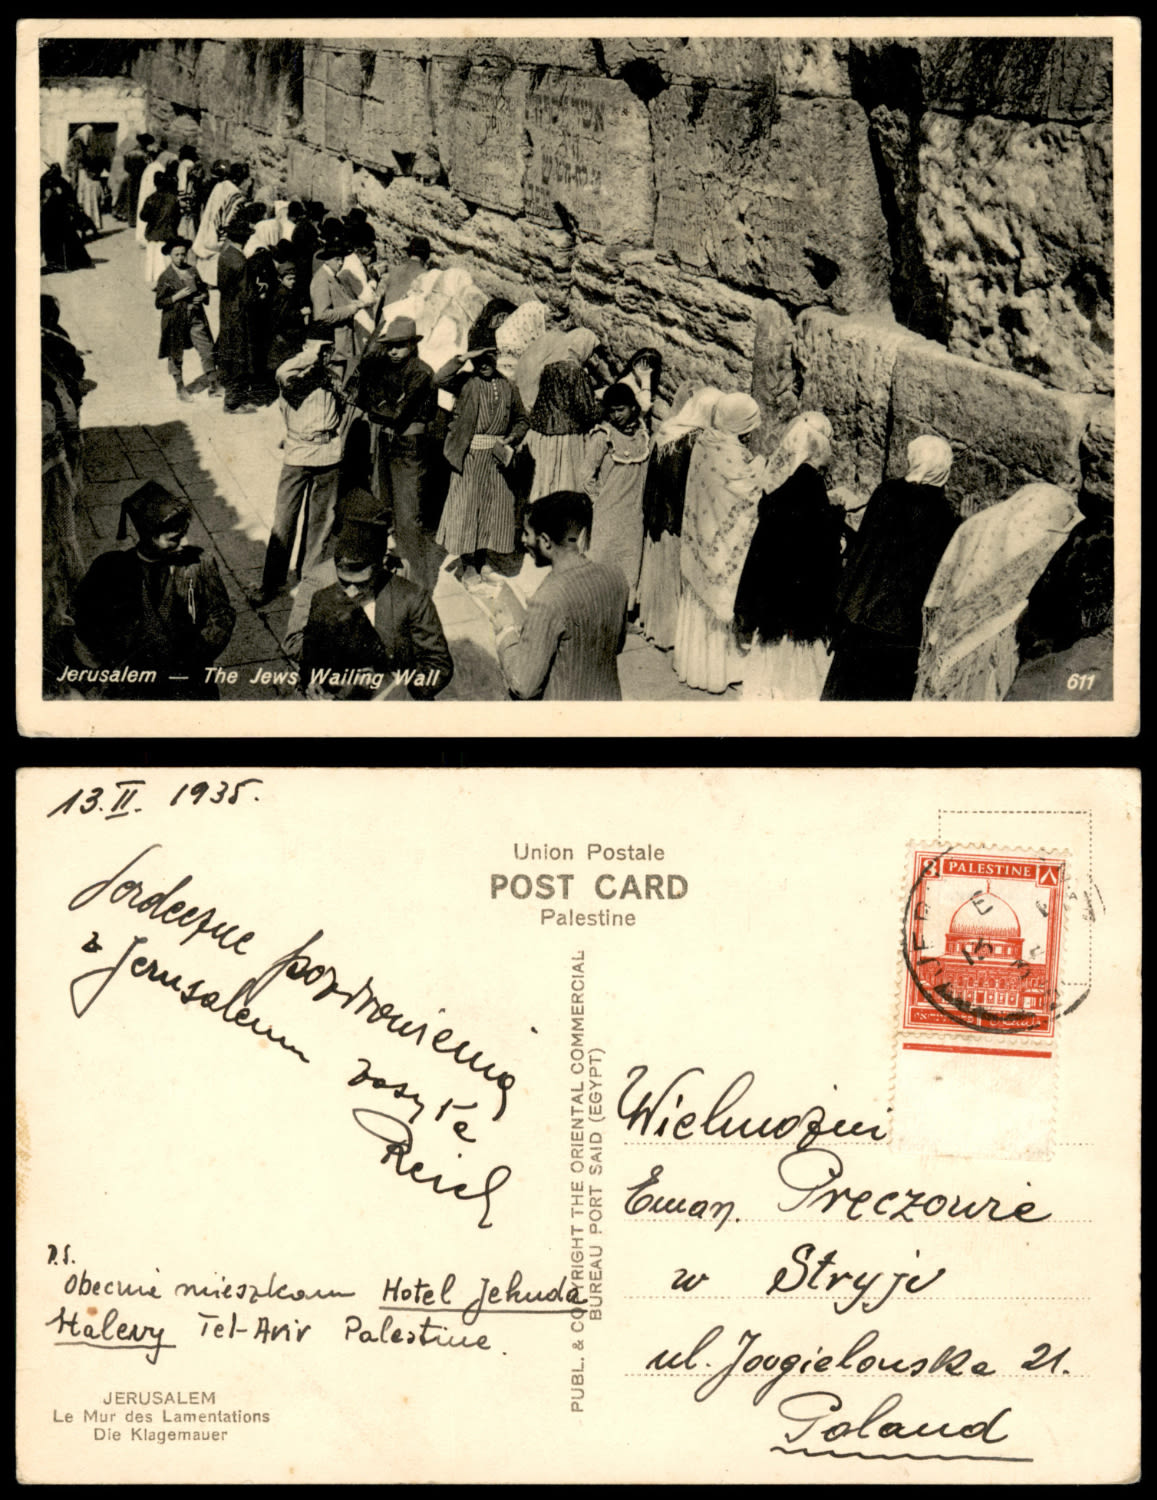 Jerusalem — The Jews Wailing Wall
611
13. II. 1935.
Serdeczne pozdrowienia
z Jerusalem zasyła
Reich
P.S.
Obecnie mieszkam Hotel Jehuda
Halevy Tel-Aviv Palestine.
JERUSALEM
Le Mur des Lamentations
Die Klagemauer
Union Postale
POST CARD
Palestine
PUBL. & COPYRIGHT THE ORIENTAL COMMERCIAL
BUREAU PORT SAID (EGYPT)
8 PALESTINE ٨
Wielmożni
Eman. Preczowie
w Stryju
ul. Jagielońska 21.
Poland